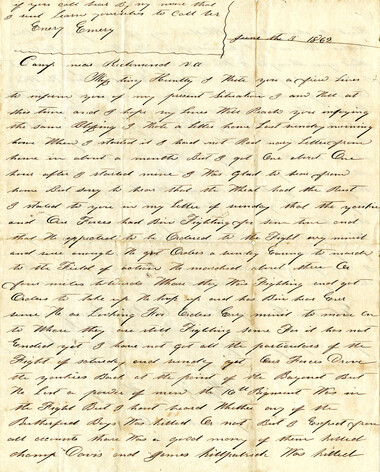 if you call her by my name that
I and learn yourselves to call her
Emery Emery
June the 3 1862
Camp near Richmond va
My Family I Write you a few lines
to inform you of my present Situation I am Well at
this time and I hope my lines Will Reach you enjoying
the same Blessing I Wrote a letter home Last sunday morning
here When I started it I had not Had any Letter from
home in about a month But I got One about One
hour after I started mine I Was Glad to hear from
home But sorry to hear that the Wheat had the Rust
I stated to you in my letter of sunday that the yankies
and Our Forces had Bin Fighting for some time and
that We expected to be Ordered to the Fight evry minit
and sure enough We got Orders a sunday Evning to march
to the Field of action We marched about three Or
four miles towards Where they Was Fighting and got
Orders to take up We stop up and has Bin here Ever
since We are Looking For Orders Evry minit to move on
to Where they are still Fighting some For it has not
Ended yet I have not got all the particulars of the
Fight of saturday and sunday yet Our Forces Drove
the yankies Back at the point of the Bayonet But
We Lost a power of men the 16th Regiment Was in
the Fight But I hant heard Whether any of the
Rutherford Boys Was killed Or not But I Expect from
all accounts there Was a good many of them killed
champ Davis and James killpatrick Was killed